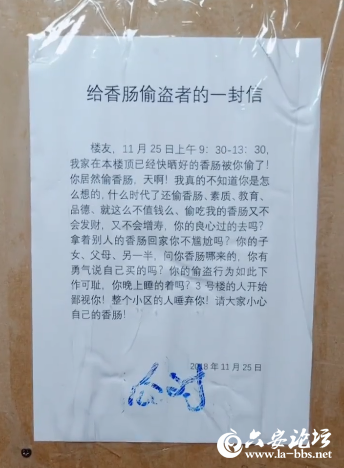 给香肠偷盗者的一封信
楼友，11月25日上午9：30-13：30，
我家在本楼顶已经快晒好的香肠被你偷了！
你居然偷香肠、天啊！我真的不知道你是怎
么想的，什么时代了还偷香肠、素质、教育、
品德、就这么不值钱么、偷吃我的香肠又不
会发财、又不会增寿，你的良心过的去吗？
拿着别人的香肠回家你不尴尬吗？你的子
女、父母、另一半，问你香肠哪来的，你有
勇气说自己买的吗？你的偷盗行为如此下
作可耻，你晚上睡的着吗？3号楼的人开始
鄙视你！整个小区的人唾弃你！请大家小心
自己的香肠！
2018年11月25日
六安论坛
www.la-bbs.net